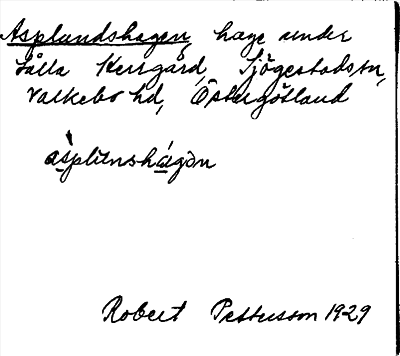 Asplundshagen, hage under
Sålla Herrgård, Sjögestads sn,
Valkebo hd, Östergötland
Robert Pettersson 1929